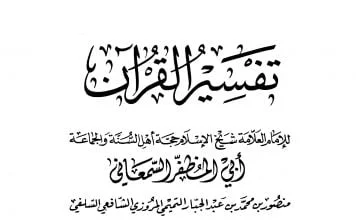 تفسير القرآن
للإمام العلامة شيخ الإسلام حجة أهل السنة والجماعة
أبي المظفر السمعاني
منصور بن محمد بن عبد الجبار التميمي المروزي الشافعي السلفي